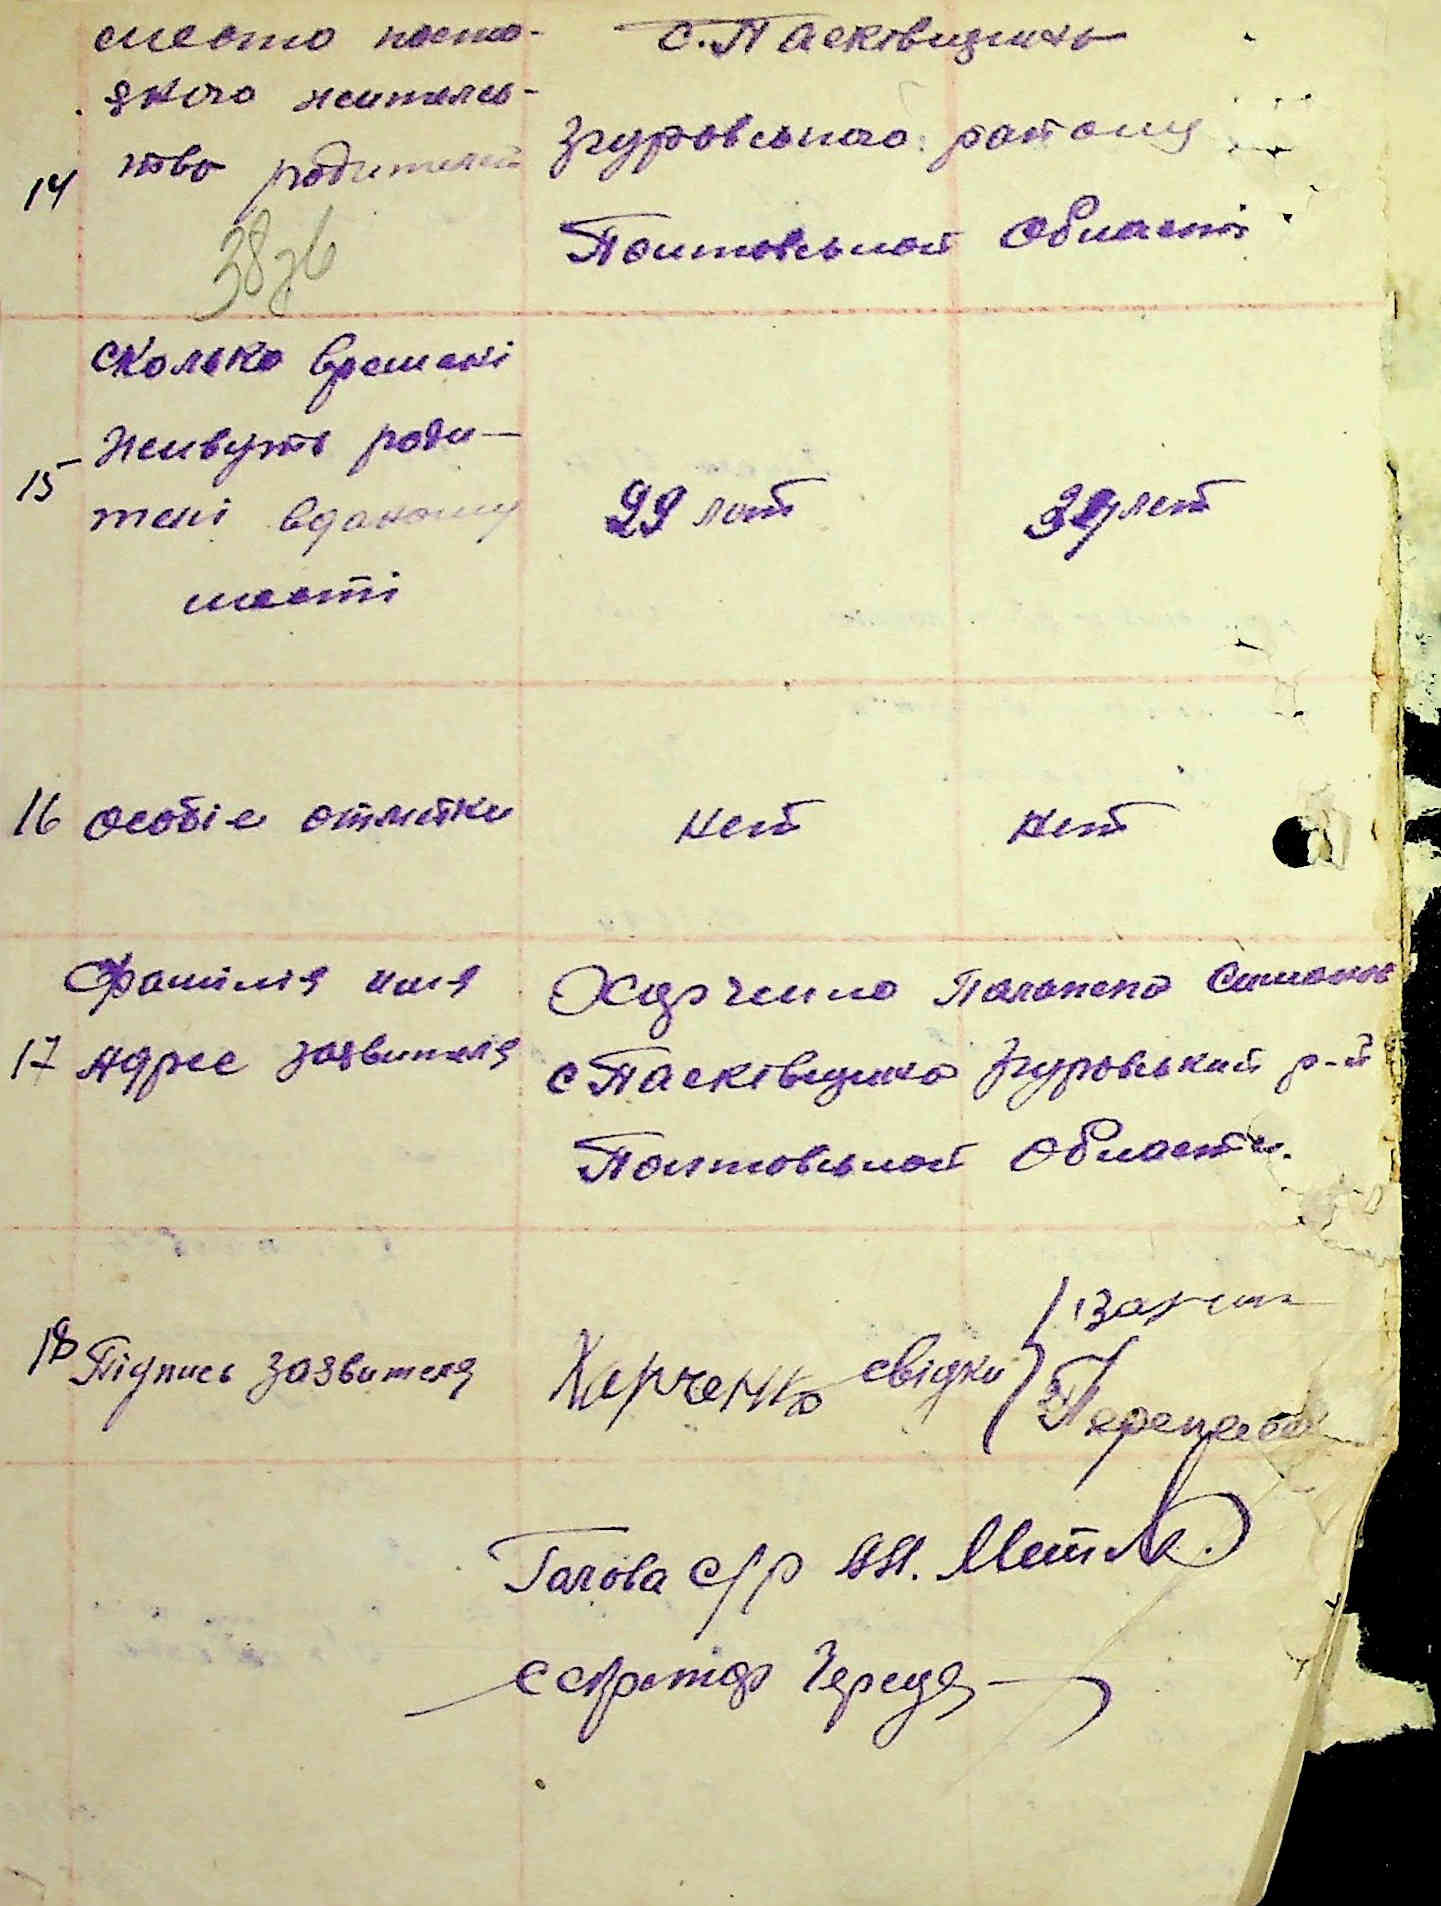 место посто-
яного жительс-
14 тво родителей
с. Пасківщина
Згуровського району
Полтовської Області
15 сколько времені
живуть роди-
телі вданому
месті
29 лет
39 лет
16 особіе отметки
нет
нет
17 Фамілія имя
Адрес заявителя
Харченко Палажка Симонов
с Пасківщина Згуровський р-н
Полтовськой Области.
18 Підпись заявителя
Харченко свідки
Голова с/р
секретар Череда